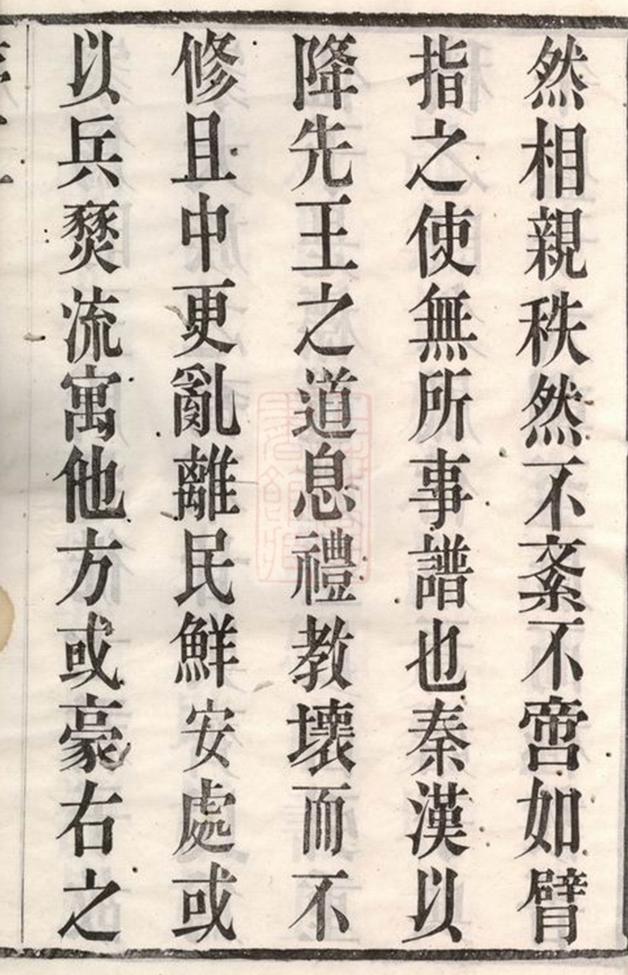 然相親秩然不紊不啻如臂
指之使無所事譜也秦漢以
降先王之道息禮教壞而不
修且中更亂離民鮮安處或
以兵燹流寓他方或豪右之